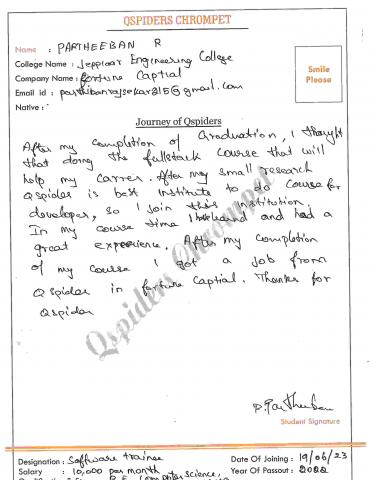 QSPIDERS CHROMPET
Name : PARTHEEBAN R
College Name : Jeppiaar Engineering College
Company Name : fortune Captial
Email id :
Native :
Smile
Please
Journey of Qspiders
After my completion of Graduation, I thought
that doing the fullstack course that will
help my carrer. After my small research
Qspider is best institute to do course for
developer, so I join this institution.
In my course time I and had a
great experience. After my completion
of my course I got a job from
Qspider in fortune Captial. Thanks for
Qspider
Qspiders Chrompet
P. Partheeban
Student Signature
Designation : Software trainee
Date Of Joining : 19/06/23
Salary : 10,000 per month
Year Of Passout : 2022
B.E computer science,